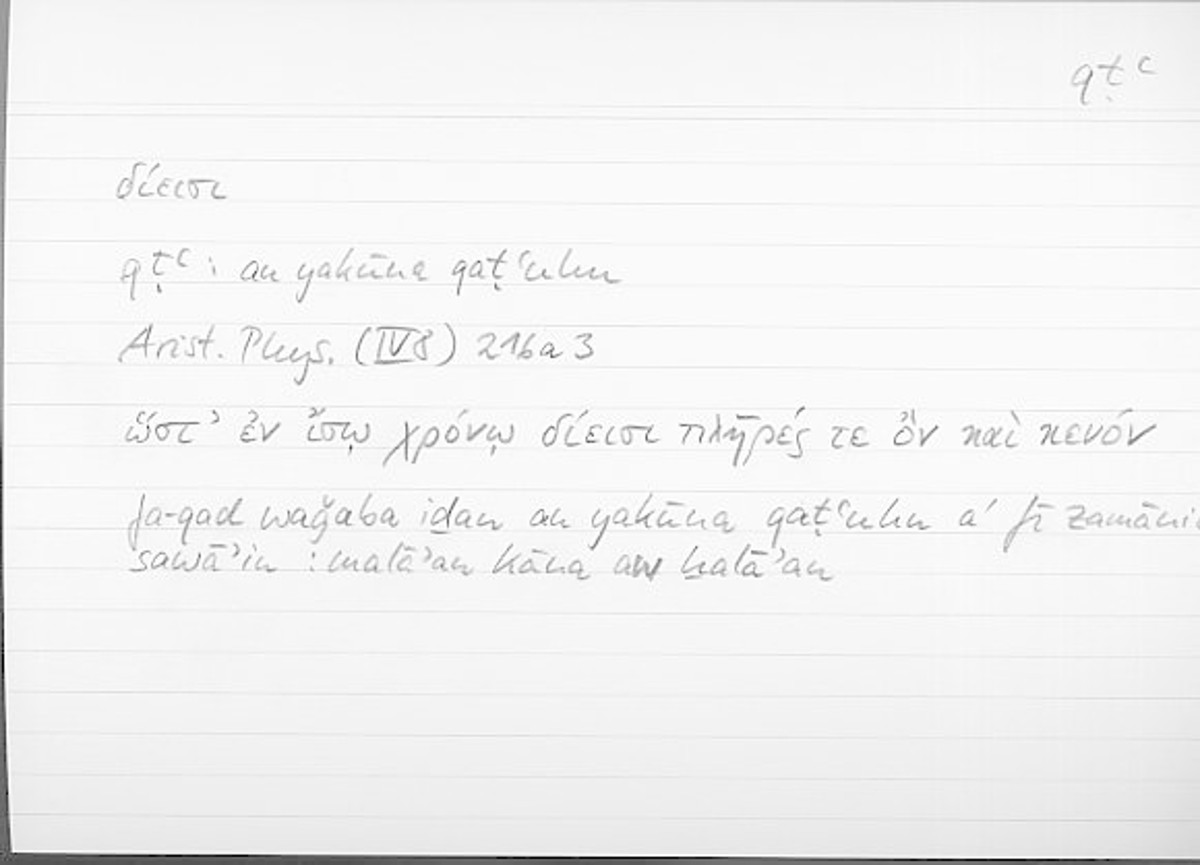 qṭʿ
δίεισι
qṭʿ: an yakūna qaṭʿuhu
Arist. Phys. (IV 8) 216a3
ὥστ' ἐν ἴσῳ χρόνῳ δίεισι πλῆρές τε ὂν καὶ κενόν
fa-qad waǧaba iḏan an yakūna qaṭʿuhu a' fī zamānin
sawā'in : malā'an kāna aw ḫalā'an